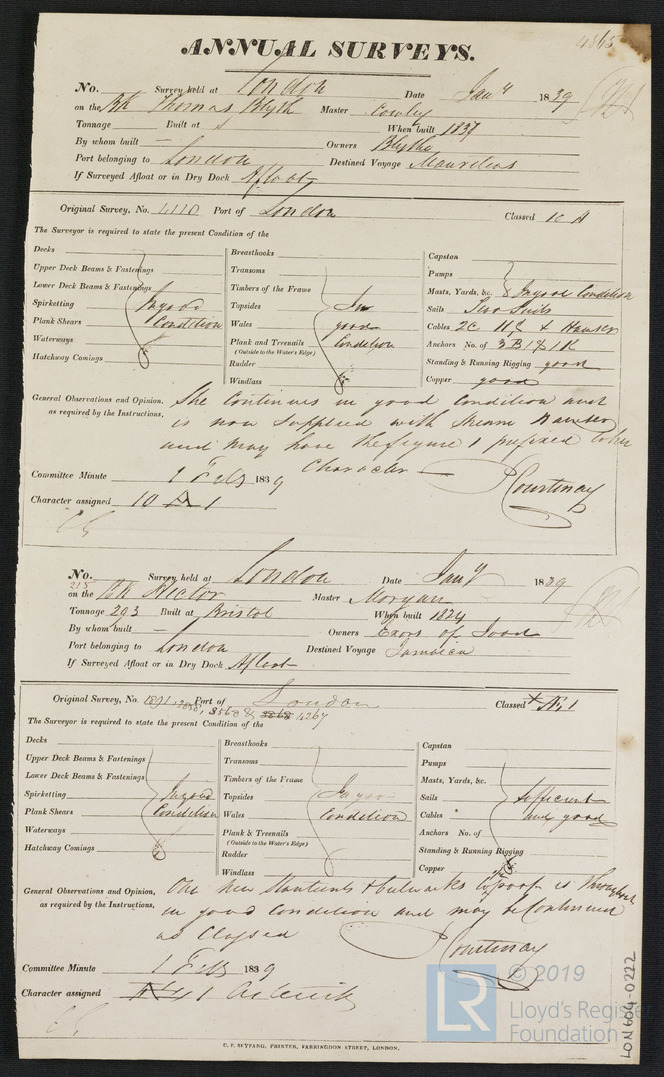 4365
ANNUAL SURVEYS.
No. Survey held at London Date Jany 1839
on the Bk Thomas Blyth Master Cowley
Tonnage Built at When built 1837
By whom built — Owners Blythe
Port belonging to London Destined Voyage Mauritius
If Surveyed Afloat or in Dry Dock Afloat
Original Survey, No. 4110 Port of London Classed 10 A
The Surveyor is required to state the present Condition of the
Decks
Upper Deck Beams & Fastenings
Lower Deck Beams & Fastenings
Spirketting In good
Plank Shears Condition
Waterways
Hatchway Comings
Breasthooks
Transoms
Timbers of the Frame
Topsides In
Wales good
Plank and Treenails Condition
(Outside to the Water's Edge)
Rudder
Windlass
Capstan
Pumps
Masts, Yards, &c. In good Condition
Sails Two Suits
Cables 2C HS & Hawser
Anchors No. of 3 B 1 S 1 K
Standing & Running Rigging good
Copper good
General Observations and Opinion, She Continues in good Condition and
as required by the Instructions, is now supplied with Stream Hawser
and may have the figure 1 prefixed to her
Character
Committee Minute 1 Feby 1839
Courtenay
Character assigned 10 A 1
No. Survey held at London Date Jany 1839
215
on the Bk Hector Master Morgan
Tonnage 293 Built at Bristol When built 1824
By whom built — Owners Exors of Tood
Port belonging to London Destined Voyage Jamaica
If Surveyed Afloat or in Dry Dock Afloat
Original Survey, No. 1891, Port of London Classed Æ 1
3568 & 4267
The Surveyor is required to state the present Condition of the
Decks
Upper Deck Beams & Fastenings
Lower Deck Beams & Fastenings
Spirketting In good
Plank Shears Condition
Waterways
Hatchway Comings
Breasthooks
Transoms
Timbers of the Frame
Topsides In good
Wales Condition
Plank & Treenails
(Outside to the Water's Edge)
Rudder
Windlass
Capstan
Pumps
Masts, Yards, &c.
Sails Sufficient
Cables and good
Anchors No. of
Standing & Running Rigging
Copper
General Observations and Opinion, One new Stantients & bulwarks is Throughout
as required by the Instructions, in good Condition and may be Continued
as Classed
Courtenay
Committee Minute 1 Feby 1839
Character assigned Æ 1 Asterisk
C. F. SEYFANG, PRINTER, FARRINGDON STREET, LONDON.
LR © 2019
Lloyd's Register
Foundation
LON604-0222